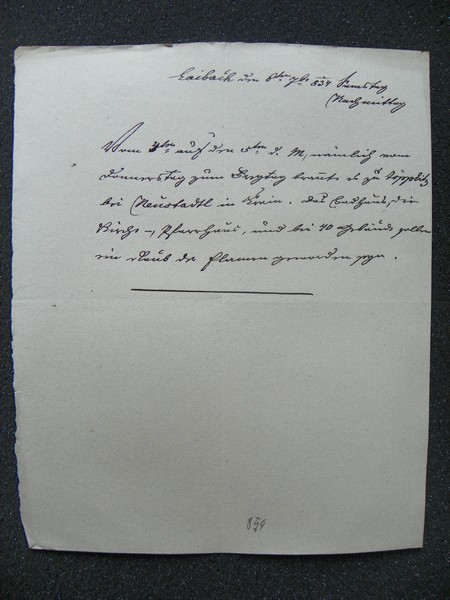 Laibach den 6ten 7br 834 Samstag
Nachmittag
Vom 4ten auf den 5ten d. M, nämlich vom
Donnerstag zum Freytag brante es zu Töpplitz
bei Neustadtl in Krain. Das Badhaus, die
Kirche -, Pfarrhaus, und bei 40 Gebäude sollen
ein Raub der Flamen geworden seyn.